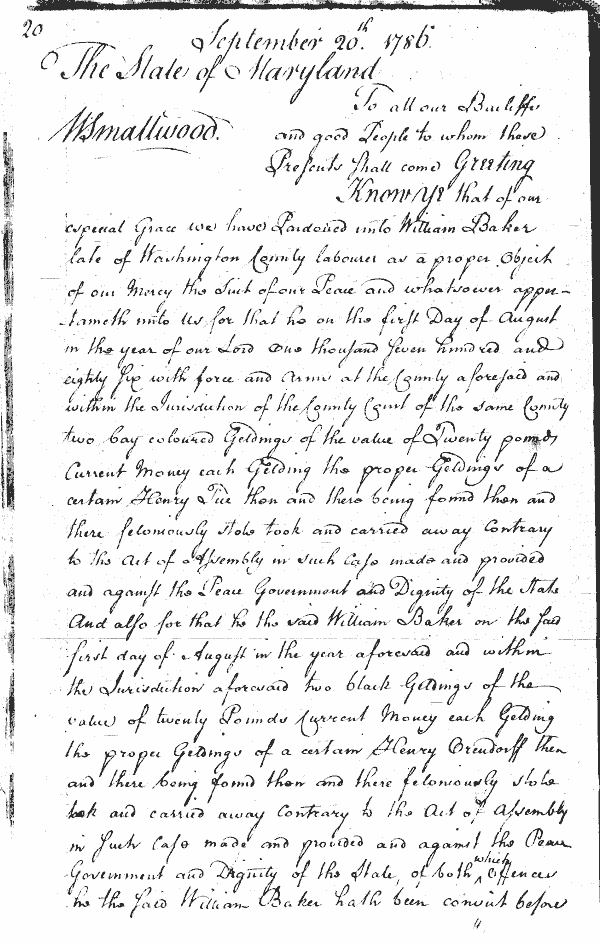 20
September 20th. 1786.
The State of Maryland
To all our Bailiffs
WSmallwood.
and good People to whom these
Presents Shall come Greeting
Know Ye that of our
especial Grace we have Pardoned unto William Baker
late of Washington County labourer as a proper Object
of our Mercy the Suit of our Peace and whatsoever apper-
taineth unto Us for that he on the first Day of August
in the year of our Lord One thousand Seven hundred and
eighty Six with force and Arms at the County aforesaid and
within the Jurisdiction of the County Court of the same County
two bay coloured Geldings of the value of Twenty pounds
Current Money each Gelding the proper Geldings of a
certain Henry then and there being found then and
there feloniously stole took and carried away Contrary
to the Act of Assembly in such Case made and provided
and against the Peace Government and Dignity of the State
And also for that he the said William Baker on the said
first day of August in the year aforesaid and within
the Jurisdiction aforesaid two black Geldings of the
value of twenty Pounds Current Money each Gelding
the proper Geldings of a certain Henry Orendorff then
and there being found then and there feloniously stole
took and carried away Contrary to the Act of Assembly
in Such Case made and provided and against the Peace
Government and Dignity of the State, of both which Offences
he the Said William Baker hath been convict before